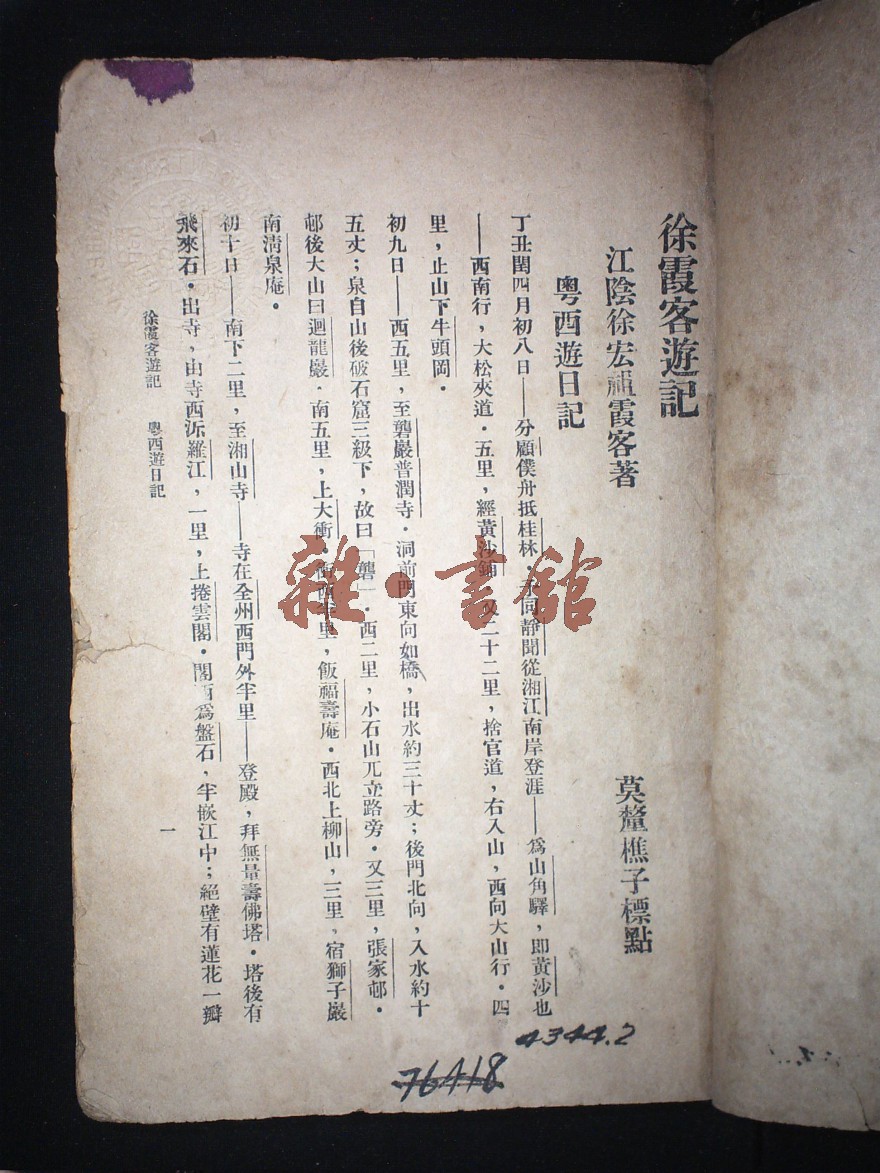 徐霞客遊記
江陰徐宏祖霞客著
莫釐樵子標點
粵西遊日記
丁丑閏四月初八日——分顧僕舟抵桂林．予同靜聞從湘江南岸登涯——爲山角驛，即黃沙也
——西南行，大松夾道．五里，經黃沙鋪．又二十二里，捨官道，右入山，西向大山行．四
里，止山下牛頭岡．
初九日——西五里，至礱巖普潤寺．洞前門東向如橋，出水約三十丈；後門北向，入水約十
五丈；泉自山後破石窟三級下，故曰「礱」．西二里，小石山兀立路旁．又三里，張家邨．
邨後大山曰迴龍巖．南五里，上大衝．衝西里，飯福壽庵．西北上柳山，三里，宿獅子巖
南清泉庵．
初十日——南下二里，至湘山寺——寺在全州西門外半里——登殿，拜無量壽佛塔．塔後有
飛來石．出寺，由寺西泝羅江，一里，上捲雲閣．閣西爲盤石，半嵌江中；絕壁有蓮花一瓣
徐霞客遊記　粵西遊日記
一
4344.2
76418
雜·書館